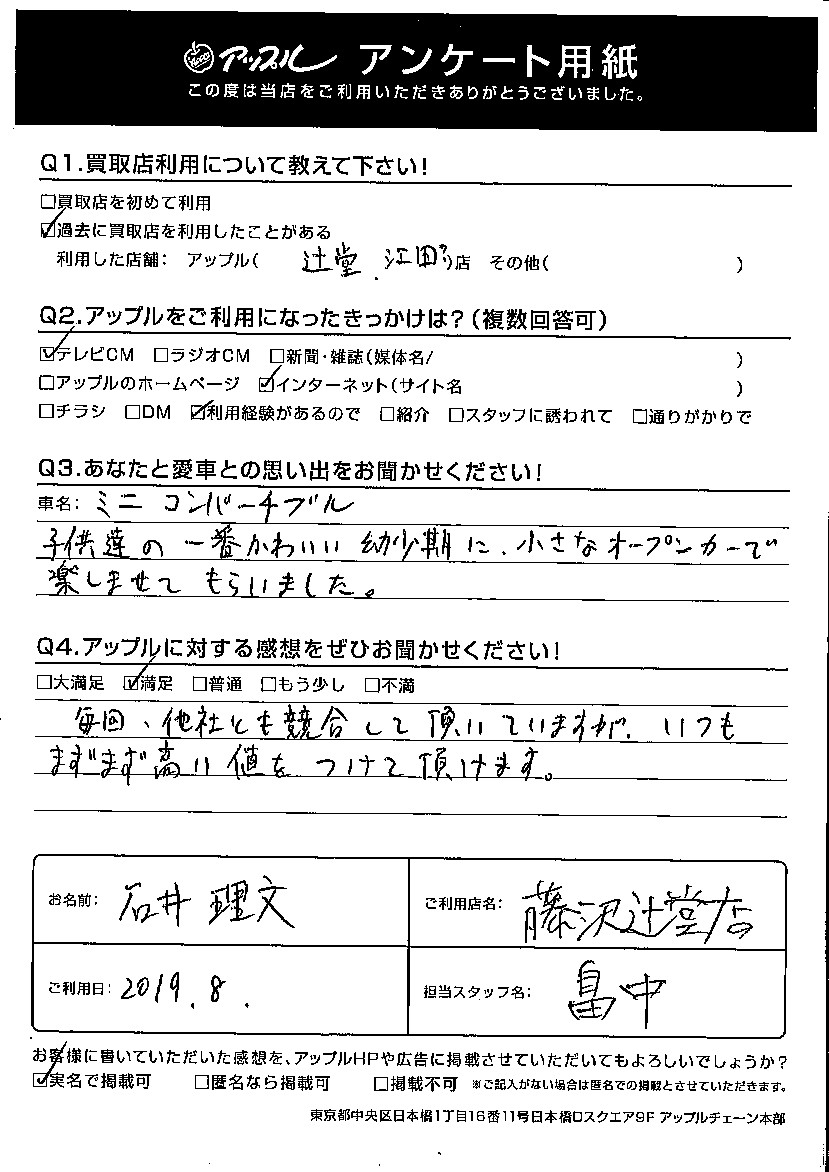 アップル アンケート用紙
この度は当店をご利用いただきありがとうございました。
Q1.買取店利用について教えて下さい!
□買取店を初めて利用
☑過去に買取店を利用したことがある
利用した店舗: アップル( 辻堂、江田? )店 その他( )
Q2.アップルをご利用になったきっかけは?(複数回答可)
☑テレビCM □ラジオCM □新聞・雑誌(媒体名/ )
□アップルのホームページ ☑インターネット(サイト名 )
□チラシ □DM ☑利用経験があるので □紹介 □スタッフに誘われて □通りがかりで
Q3.あなたと愛車との思い出をお聞かせください!
車名: ミニ コンバーチブル
子供達の一番かわいい幼少期に、小さなオープンカーで
楽しませてもらいました。
Q4.アップルに対する感想をぜひお聞かせください!
□大満足 ☑満足 □普通 □もう少し □不満
毎回、他社とも競合して頂いていますが、いつも
まずまず高い値をつけて頂けます。
お名前: 石井 理文
ご利用店名: 藤沢辻堂店
ご利用日: 2019. 8.
担当スタッフ名: 畠中
お客様に書いていただいた感想を、アップルHPや広告に掲載させていただいてもよろしいでしょうか?
☑実名で掲載可 □匿名なら掲載可 □掲載不可 ※ご記入がない場合は匿名での掲載とさせていただきます。
東京都中央区日本橋1丁目16番11号日本橋Dスクエア9F アップルチェーン本部